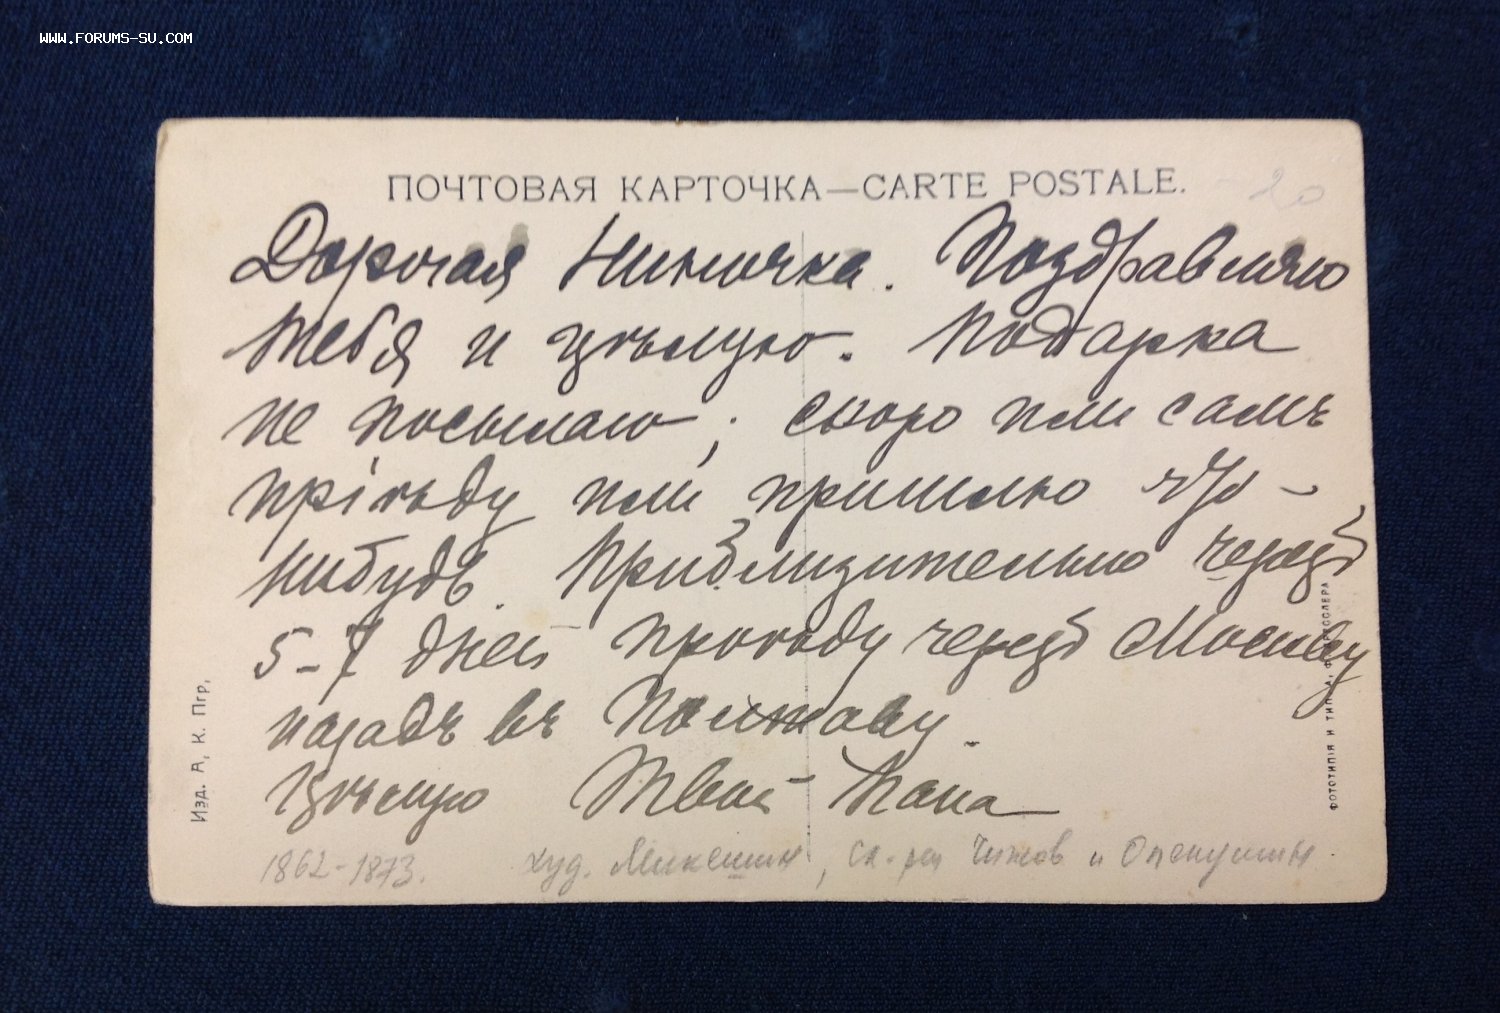 WWW.FORUMS-SU.COM
ПОЧТОВАЯ КАРТОЧКА—CARTE POSTALE.
20
Дорогая Ниночка. Поздравляю
тебя и цѣлую. Подарка
не посылаю; скоро или самъ
пріѣду или пришлю что-
нибудь. Приблизительно черезъ
5-7 дней проѣду черезъ Москву
назадъ въ Полтаву.
Цѣлую Твой Папа
1862-1873. худ. Микешин, ск-ры Чижов и Опекушин.
Изд. А. К. Пгр,
ФОТОТИПІЯ И ТИП.